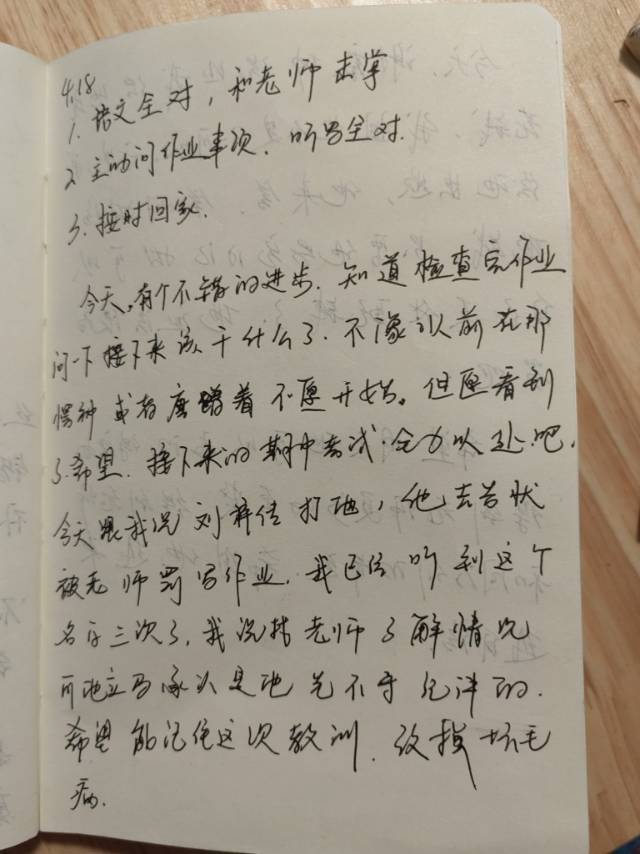 4.18
1. 语文全对，和老师击掌
2 主动问作业事项、听写全对.
3. 按时回家.
今天,有个不错的进步.知道检查完作业
问一下接下来该干什么了.不像以前在那
愣神或者磨蹭着不愿开始。但愿看到
了希望.接下来的期中考试.全力以赴吧.
今天跟我说刘梓佳打他，他去告状
被老师罚写作业.我已经听到这个
名字三次了,我说找老师了解情况
可他立马承认是他先不守纪律的.
希望能记住这次教训.改掉坏毛
病.